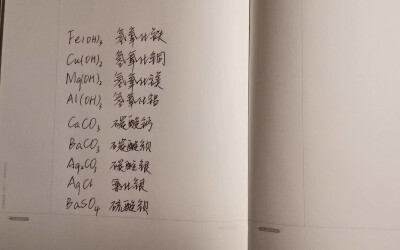 Fe(OH)₃ 氢氧化铁
Cu(OH)₂ 氢氧化铜
Mg(OH)₂ 氢氧化镁
Al(OH)₃ 氢氧化铝
CaCO₃ 碳酸钙
BaCO₃ 碳酸钡
Ag₂CO₃ 碳酸银
AgCl 氯化银
BaSO₄ 硫酸钡